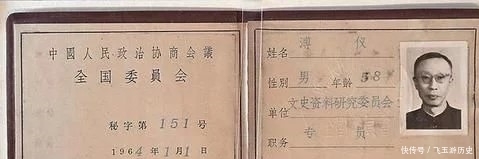 中國人民政治協商会議
全国委員会
秘字第 151 号
1964年1月1日
姓名 溥仪
性別 男 年龄 58
单位 文史资料研究委员会
职务 专员
快传号 / 飞玉游历史